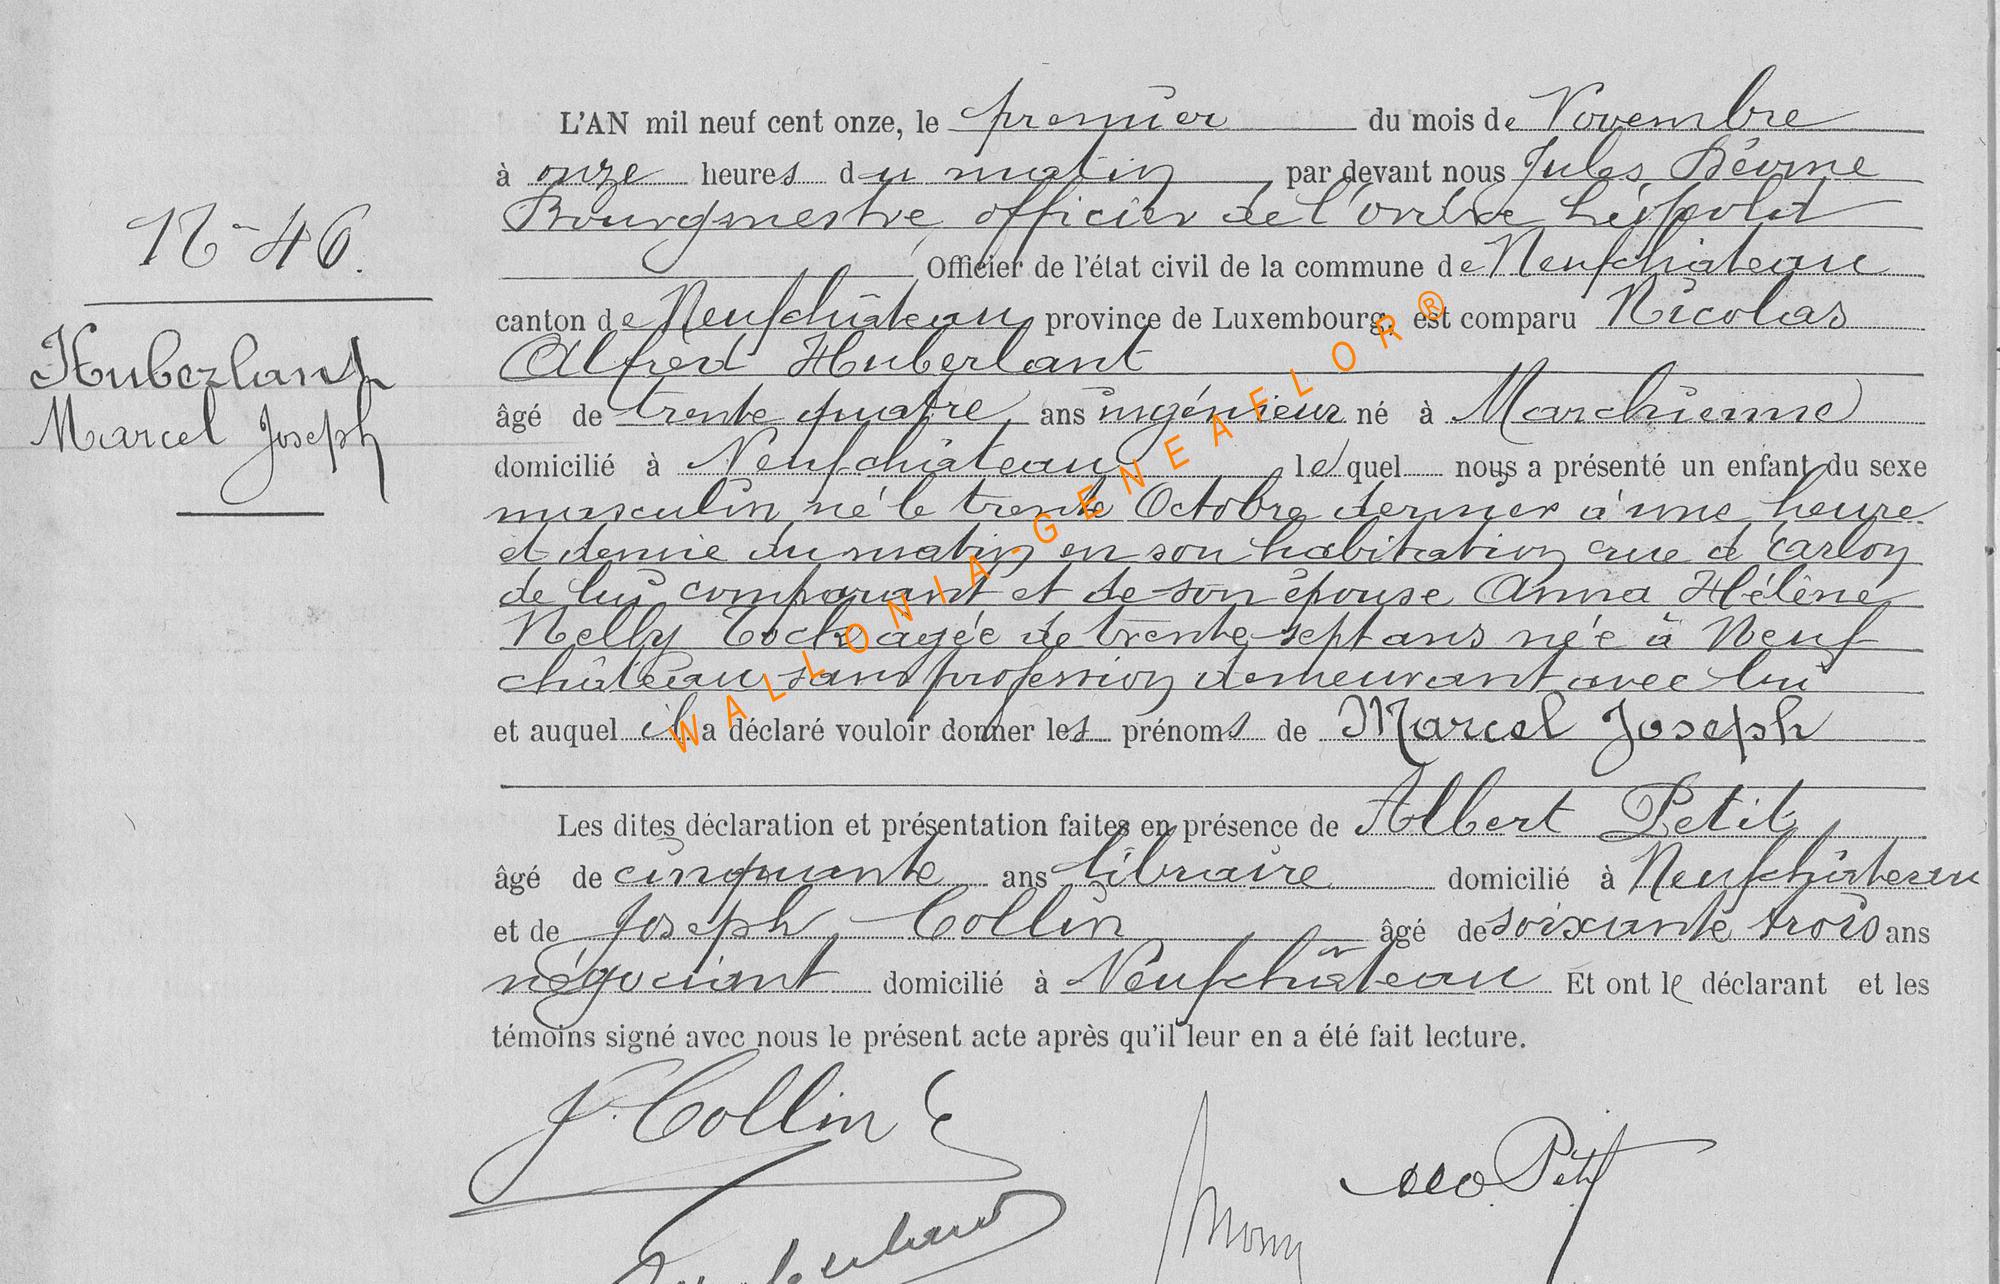 N- 46.
Huberlant
Marcel Joseph
L'AN mil neuf cent onze, le premier du mois de Novembre
à onze heures du matin par devant nous Jules
Bourgmestre, officier de l'ordre Léopold
Officier de l'état civil de la commune de Neufchateau
canton de Neufchâteau province de Luxembourg, est comparu Nicolas
Alfred Huberlant
âgé de trente quatre ans ingénieur né à Marchienne
domicilié à Neufchâteau lequel nous a présenté un enfant du sexe
masculin né le trente Octobre dernier à une heure
et demie du matin en son habitation rue d'Arlon
de lui comparant et de son épouse Anna Hélène
Nelly Tock agée de trente-sept ans née à Neuf
château sans profession demeurant avec lui
et auquel il a déclaré vouloir donner les prénoms de Marcel Joseph
Les dites déclaration et présentation faites en présence de Albert Petit
âgé de cinquante ans libraire domicilié à Neufchâteau
et de Joseph Collin âgé de soixante trois ans
négociant domicilié à Neufchâteau Et ont le déclarant et les
témoins signé avec nous le présent acte après qu'il leur en a été fait lecture.
J. Collin
Petit
Huberlant
WALLONIA-GENEAFLOR®